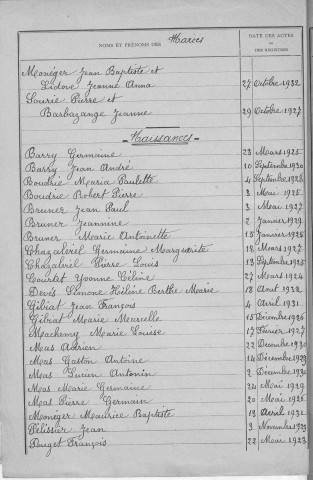 NOMS ET PRÉNOMS DES Mariés
DATE DES ACTES
OU
DES REGISTRES
Monéger Jean Baptiste et
Lidove Jeanne Anna 27 Octobre 1932
Sourie Pierre et
Barbazange Jeanne 29 Octobre 1927
- Naissances -
Barry Germaine 23 Mars 1925
Barry Jean André 10 Septembre 1930
Boudrie Maria Paulette 4 Septembre 1928
Boudrie Robert Pierre 3 Mai 1925
Bruner Jean Paul 3 Mai 1927
Bruner Jeannine 2 Janvier 1929
Bruner Marie Antoinette 15 Janvier 1925
Chazalviel Germaine Marguerite 18 Mars 1927
Chazalviel Pierre Louis 13 Septembre 1925
Courbet Yvonne Céline 27 Mars 1924
Devès Simone Hélène Berthe Marie 18 Août 1922
Gibiat Jean François 4 Avril 1931
Gibiat Marie Marcelle 15 Décembre 1926
Machemy Marie Louise 17 Février 1927
Mas Adrien 22 Décembre 1930
Mas Gaston Antoine 14 Décembre 1923
Mas Lucien Antonin 2 Décembre
Mas Marie Germaine 24 Mai 1929
Mas Pierre Germain 20 Mai 1926
Monéger Maurice Baptiste 13 Avril
Pélissier Jean 3 Novembre 1923
Pouget François 22 Mai 1923